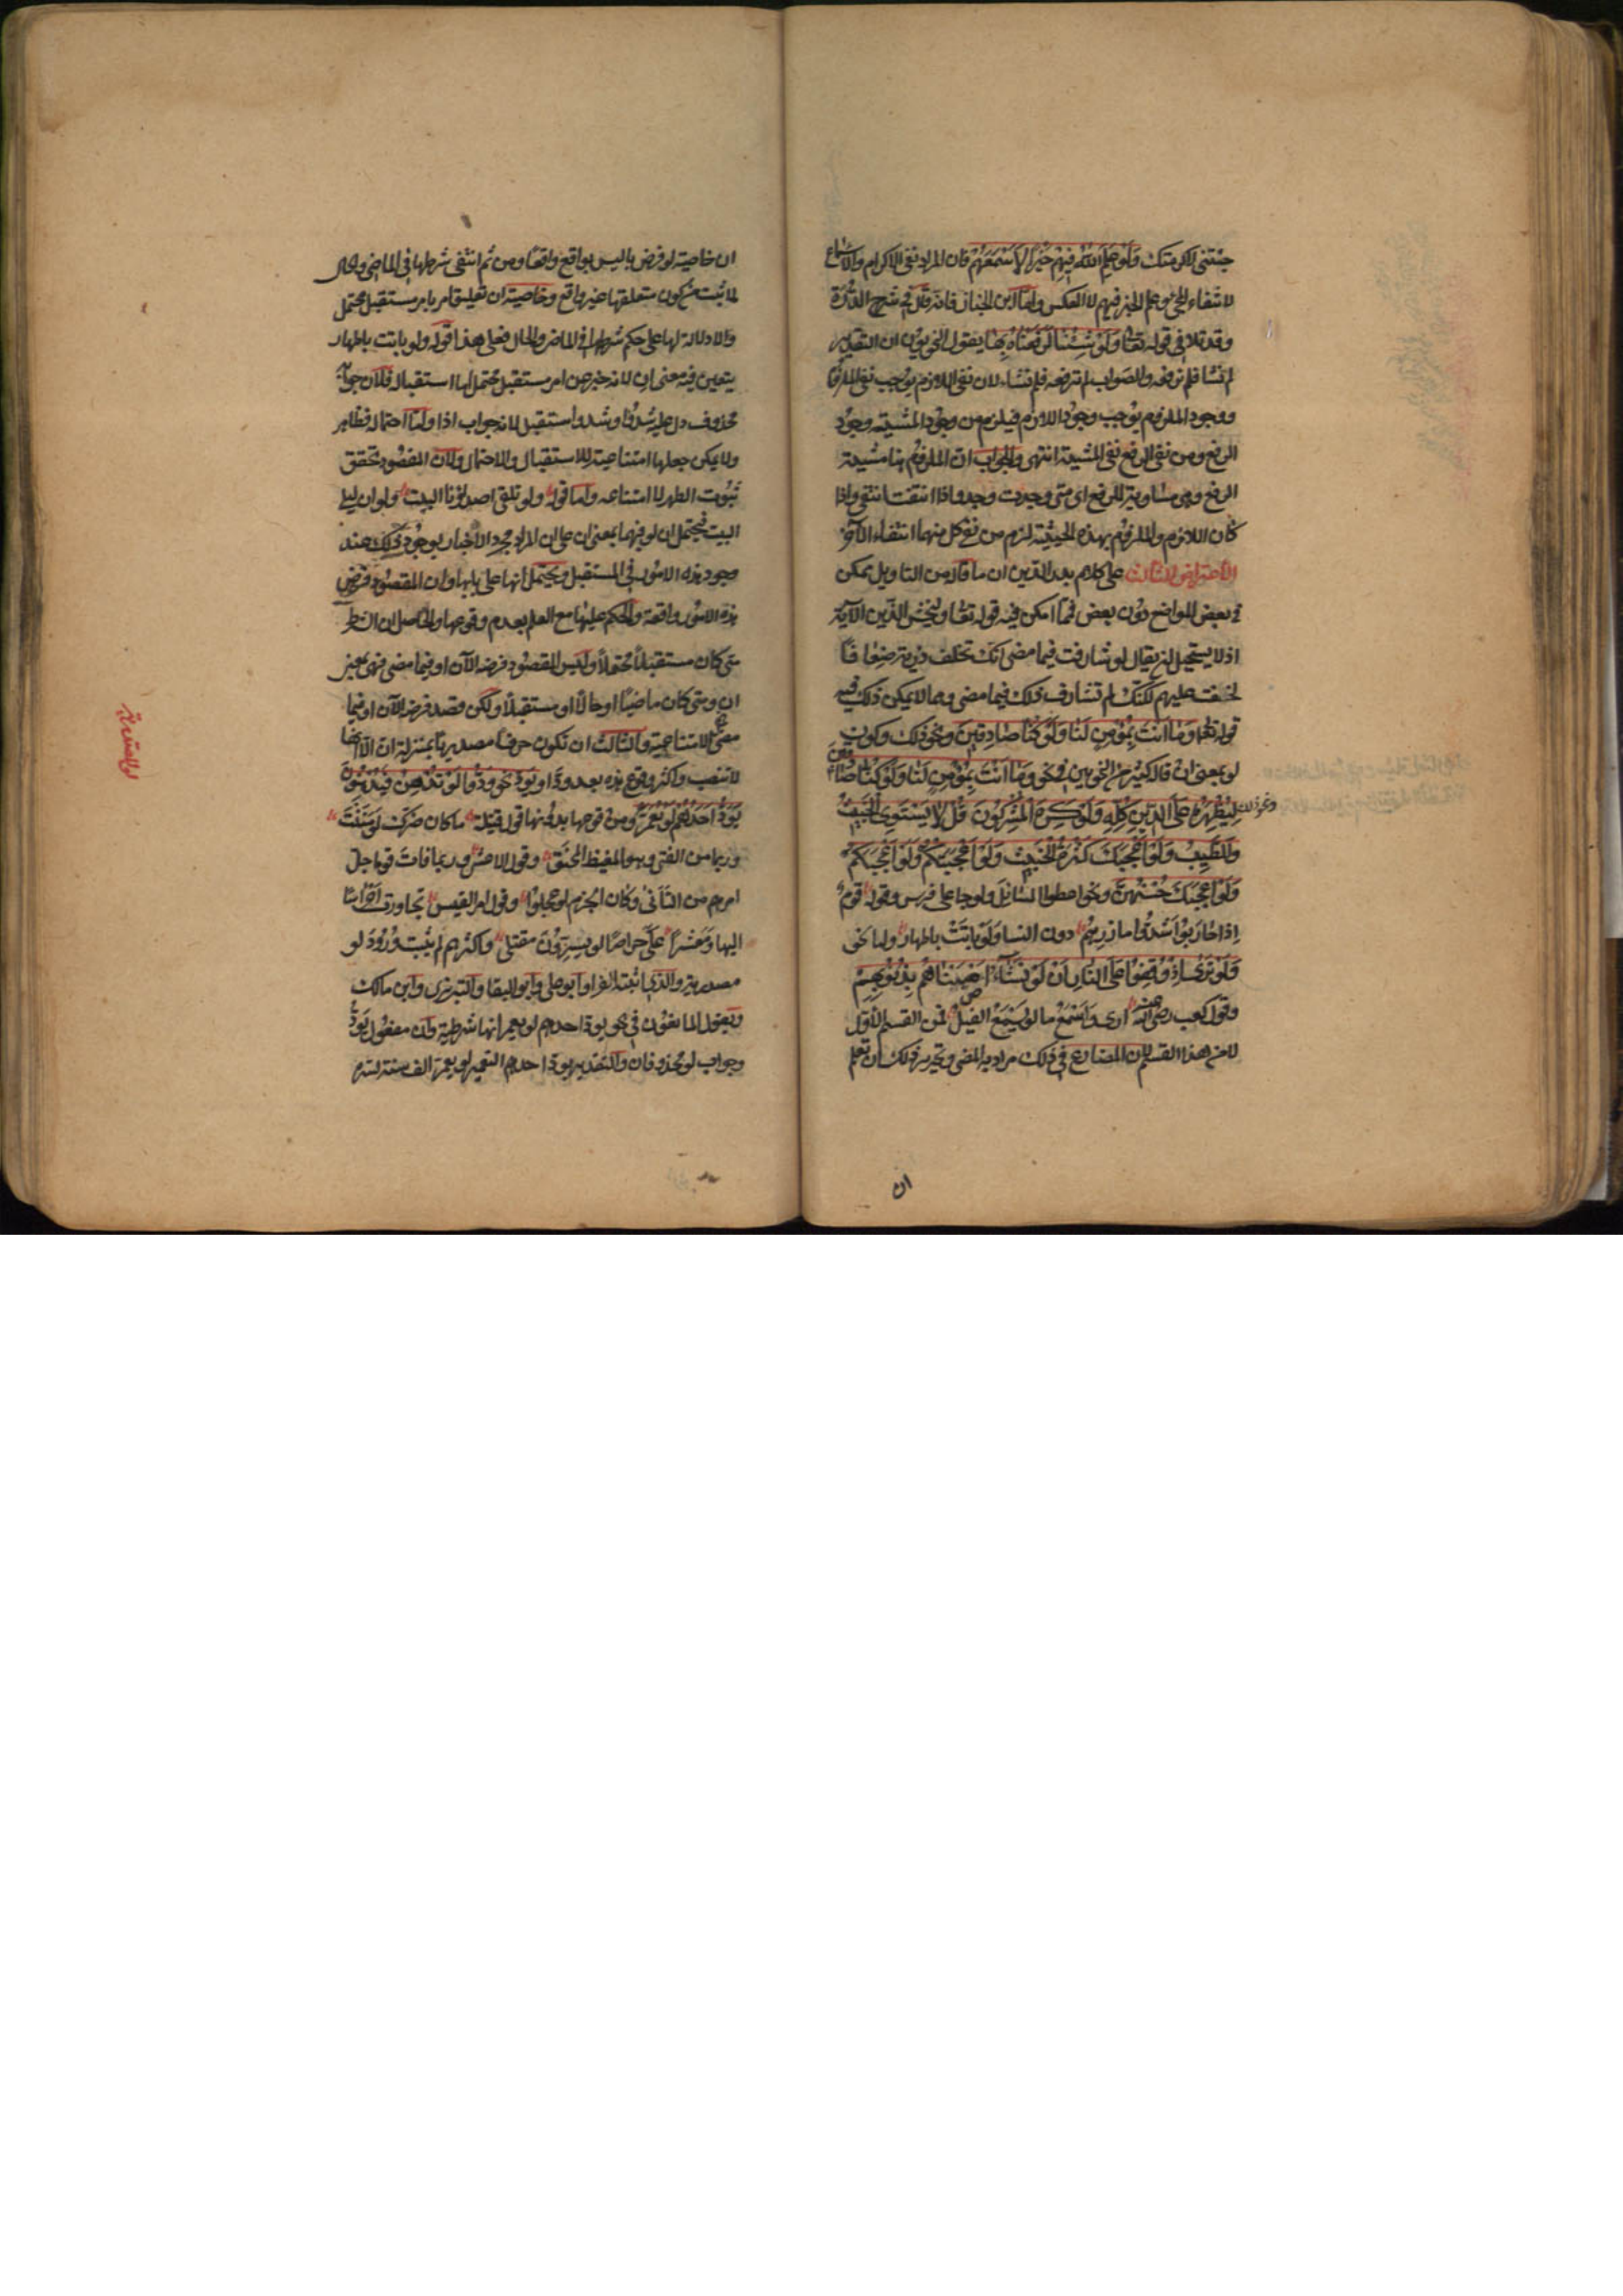 جئتنى لاكرمتك ولو علم الله فيهم خيرا لاسمعهم فان المراد نفى الاكرام والاسماع
لانتفاء المجئ وعلم الخير فيهم لا العكس واما ابن الخباز فانه قال فى شرح الدرة
وقد تلا فى قوله تعا ولو شئنا لرفعناه بها يقول النحويون ان التقدير
لم نشا فلم نرفعه والصواب لم نرفعه فلم نشاء لان نفى اللازم يوجب نفى الملزوم
ووجود الملزوم يوجب وجود اللازم فيلزم من وجود المشيئة وجود
الرفع ومن نفى الرفع نفى المشيئة انتهى والجواب ان الملزوم هنا مشيئة
الرفع وهى مساوية للرفع اى متى وجدت وجد واذا انتفت انتفى واذا
كان اللازم والملزوم بهذه الحيثية لزم من نفى كل منهما انتفاء الآخر
الاعتراض الثالث على كلام بدر الدين ان ما قاله من التاويل ممكن
فى بعض المواضع دون بعض فمما امكن فيه قوله تعا وليخش الذين الآية
اذ لا يستحيل ان يقال لو شارفت فيما مضى انك تخلف ذرية ضعافا
لخفت عليهم لكنك لم تشارف ذلك فيما مضى ومما لا يمكن ذلك فيه
قوله تعا وما انت بمؤمن لنا ولو كنا صادقين ونحو ذلك وكون
لو بمعنى ان قاله كثير من النحويين فى نحو وما انت بمؤمن لنا ولو كنا صادقين
ونحو ذلك ليظهره على الدين كله ولو كره المشركون قل لا يستوى الخبيث
والطيب ولو اعجبك كثرة الخبيث ولو اعجبتكم ولو اعجبكم
ولو اعجبك حسنهن ونحو اعطوا السائل ولو جا على فرس وقوله قوم
اذا حاربوا شدوا مازرهم دون النسا ولو باتت باطهار واما نحو
ولو ترى اذ وقفوا على النار ان لو نشاء اصبناهم بذنوبهم
وقول كعب رضى الله عنه ارى واسمع ما لو يسمع الفيل فمن القسم الأول
لا من هذا القسم لان المضارع فى ذلك مراد به المضى وتحرير ذلك ان تعلم
ان
ان خاصية لو فرض ما ليس بواقع واقعا ومن ثم انتفى شرطها فى الماضى والحال
لما ثبت من كون متعلقها غير واقع وخاصية ان تعليق امر بامر مستقبل محتمل
ولا دلالة لها على حكم شرطها فى الماضى والحال فعلى هذا قوله ولو باتت باطهار
يتعين فيه معنى ان لانه خبر عن امر مستقبل محتمل اما استقباله فلان جوابه
محذوف دل عليه شدوا وشدوا مستقبل لانه جواب اذا واما احتماله فظاهر
ولا يمكن جعلها امتناعية للاستقبال والاحتمال ولان المقصود تحقق
ثبوت الطهر لا امتناعه واما قوله ولو تلتقى اصداؤنا البيت ولو ان ليلى
البيت فيحتمل ان لو فيهما بمعنى ان على ان المراد مجرد الاخبار بوجود ذلك عند
وجود هذه الامور فى المستقبل ويحتمل انها على بابها وان المقصود فرض
هذه الامور واقعة والحكم عليها مع العلم بعدم وقوعها والحاصل ان الشرط
متى كان مستقبلا محتملا وليس المقصود فرضه الآن او فيما مضى فهى بمعنى
ان ومتى كان ماضيا او حالا او مستقبلا ولكن قصد فرضه الآن او فيما
مضى فهى الامتناعية والثالث ان تكون حرفا مصدريا بمنزلة ان الا انها
لا تنصب واكثر وقوع هذه بعد ود او يود نحو ودوا لو تدهن فيدهنون
يود احدهم لو يعمر ومن وقوعها بدونهما قول قتيلة ما كان ضرك لو مننت
وربما من الفتى وهو المغيظ المحنق وقول الاعشى وربما فات قوما جل
امرهم من التأنى وكان الحزم لو عجلوا وقول امرء القيس تجاوزت احراسا
اليها ومعشرا على حراصا لو يسرون مقتلى واكثرهم لم يثبت ورود لو
مصدرية والذى اثبته الفرا وابو على وابو البقا والتبريزى وابن مالك
ويقول المانعون فى نحو يود احدهم لو يعمر انها شرطية وان مفعول يود
وجواب لو محذوفان والتقدير يود احدهم التعمير لو يعمر الف سنة لسره
لو المصدرية